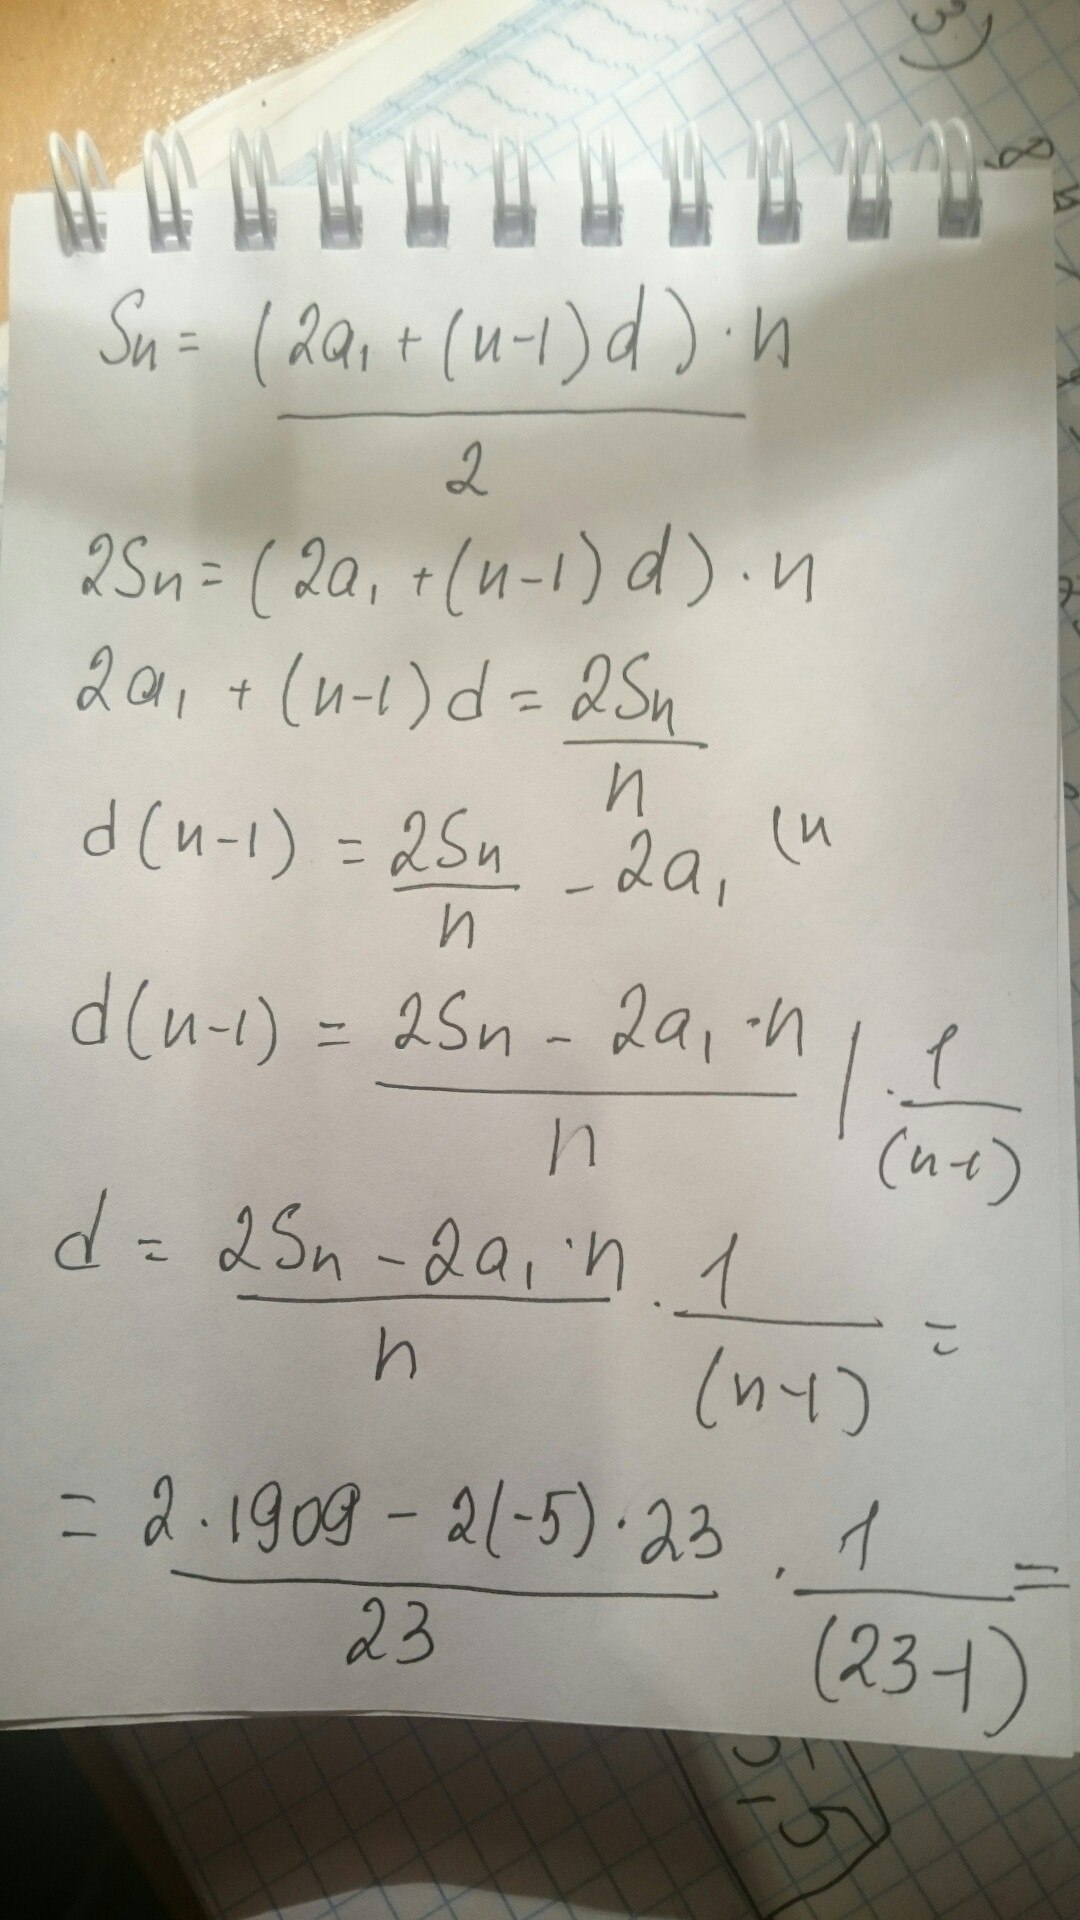 Sn = (2a₁ + (n-1)d) · n / 2
2Sn = (2a₁ + (n-1)d) · n
2a₁ + (n-1)d = 2Sn / n
d(n-1) = 2Sn / n - 2a₁ (n
d(n-1) = (2Sn - 2a₁ · n) / n | · 1 / (n-1)
d = (2Sn - 2a₁ · n) / n · 1 / (n-1) =
= (2 · 1909 - 2(-5) · 23) / 23 · 1 / (23-1) =
3)
8